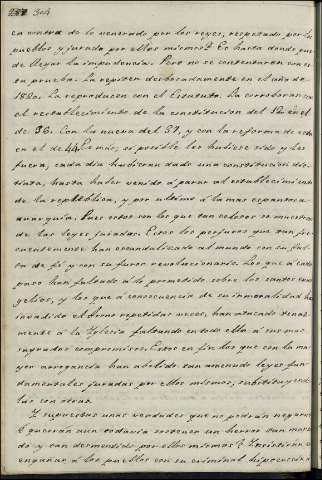 304
en contra de lo venerado por los reyes, respetado por los
pueblos y jurado por ellos mismos? Es hasta donde puede
llegar la impudencia. Pero no se contentaron con es
ta prueba. La repiten desbocadamente en el año de
1820. La reproducen con el Estatuto. La corroboran con
el restablecimiento de la constitucion del 12 en el
de 36. Con la nueva del 37, y con la reforma de esta
en el de 44. Es mas, si posible les hubiese sido y les
fuera, cada dia hubieran dado una constitucion dis
tinta, hasta haber venido á parar al establecimiento
de la república, y por ultimo á la mas espantosa
anarquia. Pues estos son los que tan celosos se muestran
de las leyes juradas. Estos los perjuros que tan fre
cuentemente han escandalizado al mundo con su fal
ta de fé y con su furor revolucionario. Los que á cada
paso han faltado á lo prometido sobre los santos evan
gelios, y los que á consecuencia de su inmoralidad han
invadido el trono repetidas veces, han atacado tenaz
mente á la Iglesia faltando en todo ella á sus mas
sagrados compromisos. Estos en fin los que con la ma
yor arrogancia han abolido tan amenudo leyes fun
damentales juradas por ellos mismos, substituyendo
las con otras.
Y supuestas unas verdades que no podrán negarse
¿querrán aun todavia sostener un herror tan marca
do y tan desmentido por ellos mismos? ¿Insistirán en
engañar á los pueblos con su criminal hipocresia